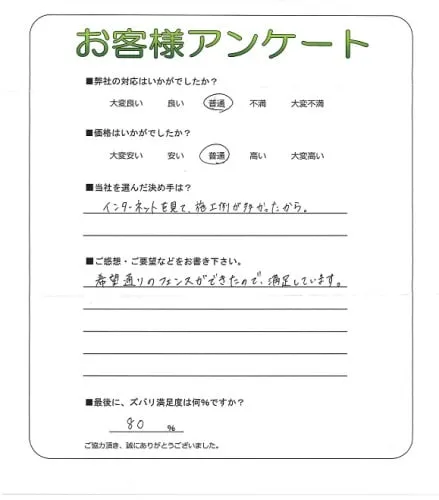 お客様アンケート
■弊社の対応はいかがでしたか?
大変良い 良い 普通 不満 大変不満
■価格はいかがでしたか?
大変安い 安い 普通 高い 大変高い
■当社を選んだ決め手は?
インターネットを見て、施工例が多かったから。
■ご感想・ご要望などをお書き下さい。
希望通りのフェンスができたので、満足しています。
■最後に、ズバリ満足度は何%ですか?
80 %
ご協力頂き、誠にありがとうございました。